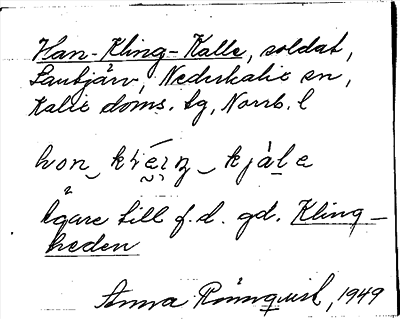 Han-Kling-Kalle, soldat,
Lantjärv, Nederkalix sn,
Kalix doms. tg, Norrb. l
Ägare till f.d. gd. Kling-
heden
Anna Rönnquist, 1949